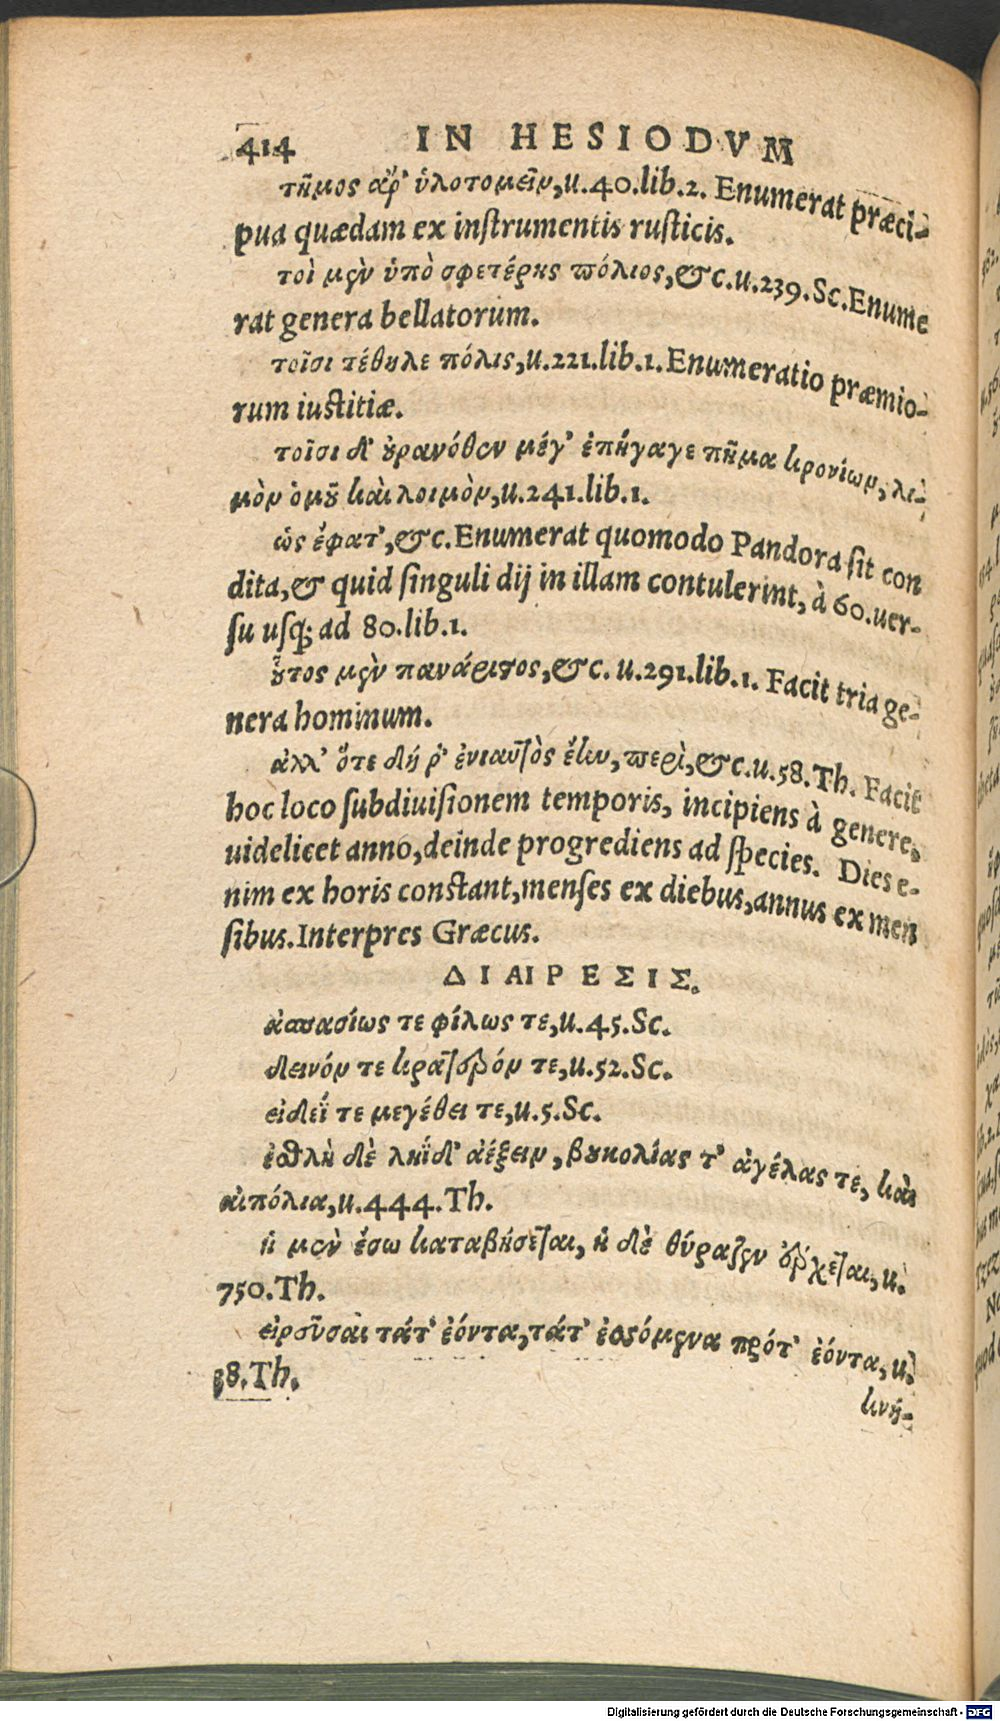 414 IN HESIODVM
τῆμος ἄρ' ὑλοτομεῖν, u.40.lib.2. Enumerat præci-
pua quædam ex instrumentis rusticis.
τοὶ μὲν ὑπὸ σφετέρης πόλιος, &c.u.239.Sc.Enume
rat genera bellatorum.
τοῖσι τέθηλε πόλις, u.221.lib.1.Enumeratio præmio-
rum iustitiæ.
τοῖσι δ' οὐρανόθεν μέγ' ἐπήγαγε πῆμα κρονίων, λι-
μὸν ὁμοῦ καὶ λοιμὸν, u.241.lib.1.
ὡς ἔφατ', &c.Enumerat quomodo Pandora sit con
dita, & quid singuli dij in illam contulerint, à 60.uer-
su usq; ad 80.lib.1.
οὗτος μὲν πανάριστος, &c. u.291.lib.1. Facit tria ge-
nera hominum.
ἀλλ' ὅτε δή ῥ' ἐνιαυτὸς ἔην, περὶ, &c.u.58.Th. Facit
hoc loco subdiuisionem temporis, incipiens à genere,
uidelicet anno, deinde progrediens ad species. Dies e-
nim ex horis constant, menses ex diebus, annus ex men
sibus.Interpres Græcus.
ΔΙΑΙΡΕΣΙΣ.
ἀσπασίως τε φίλως τε, u.45.Sc.
δεινόν τε κρατερόν τε, u.52.Sc.
εἰδεΐ τε μεγέθει τε, u.5.Sc.
ἐσθλὴ δὲ ληΐδ' ἀέξειν, βουκολίας τ' ἀγέλας τε, καὶ
αἰπόλια, u.444.Th.
ἡ μὲν ἔσω καταβήσεται, ἡ δὲ θύραζεν ἔρχεται, u.
750.Th.
εἰροῦσαι τάτ' ἐόντα, τάτ' ἐσσόμενα πρότ' ἐόντα, u.
38.Th.
κινή-
Digitalisierung gefördert durch die Deutsche Forschungsgemeinschaft - DFG